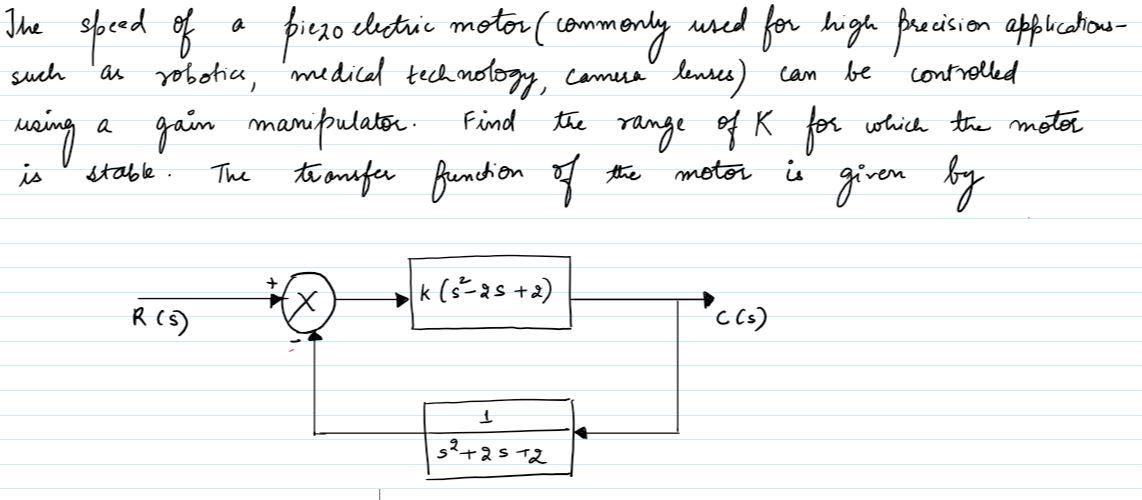 The speed of a piezo electric motor (commonly used for high precision applications-
such as robotics, medical technology, camera lenses) can be controlled
using a gain manipulator. Find the range of K for which the motor
is stable. The transfer function of the motor is given by
+ X K (s²-2s+2)
R(s) C(s)
-
1
s²+2s+2